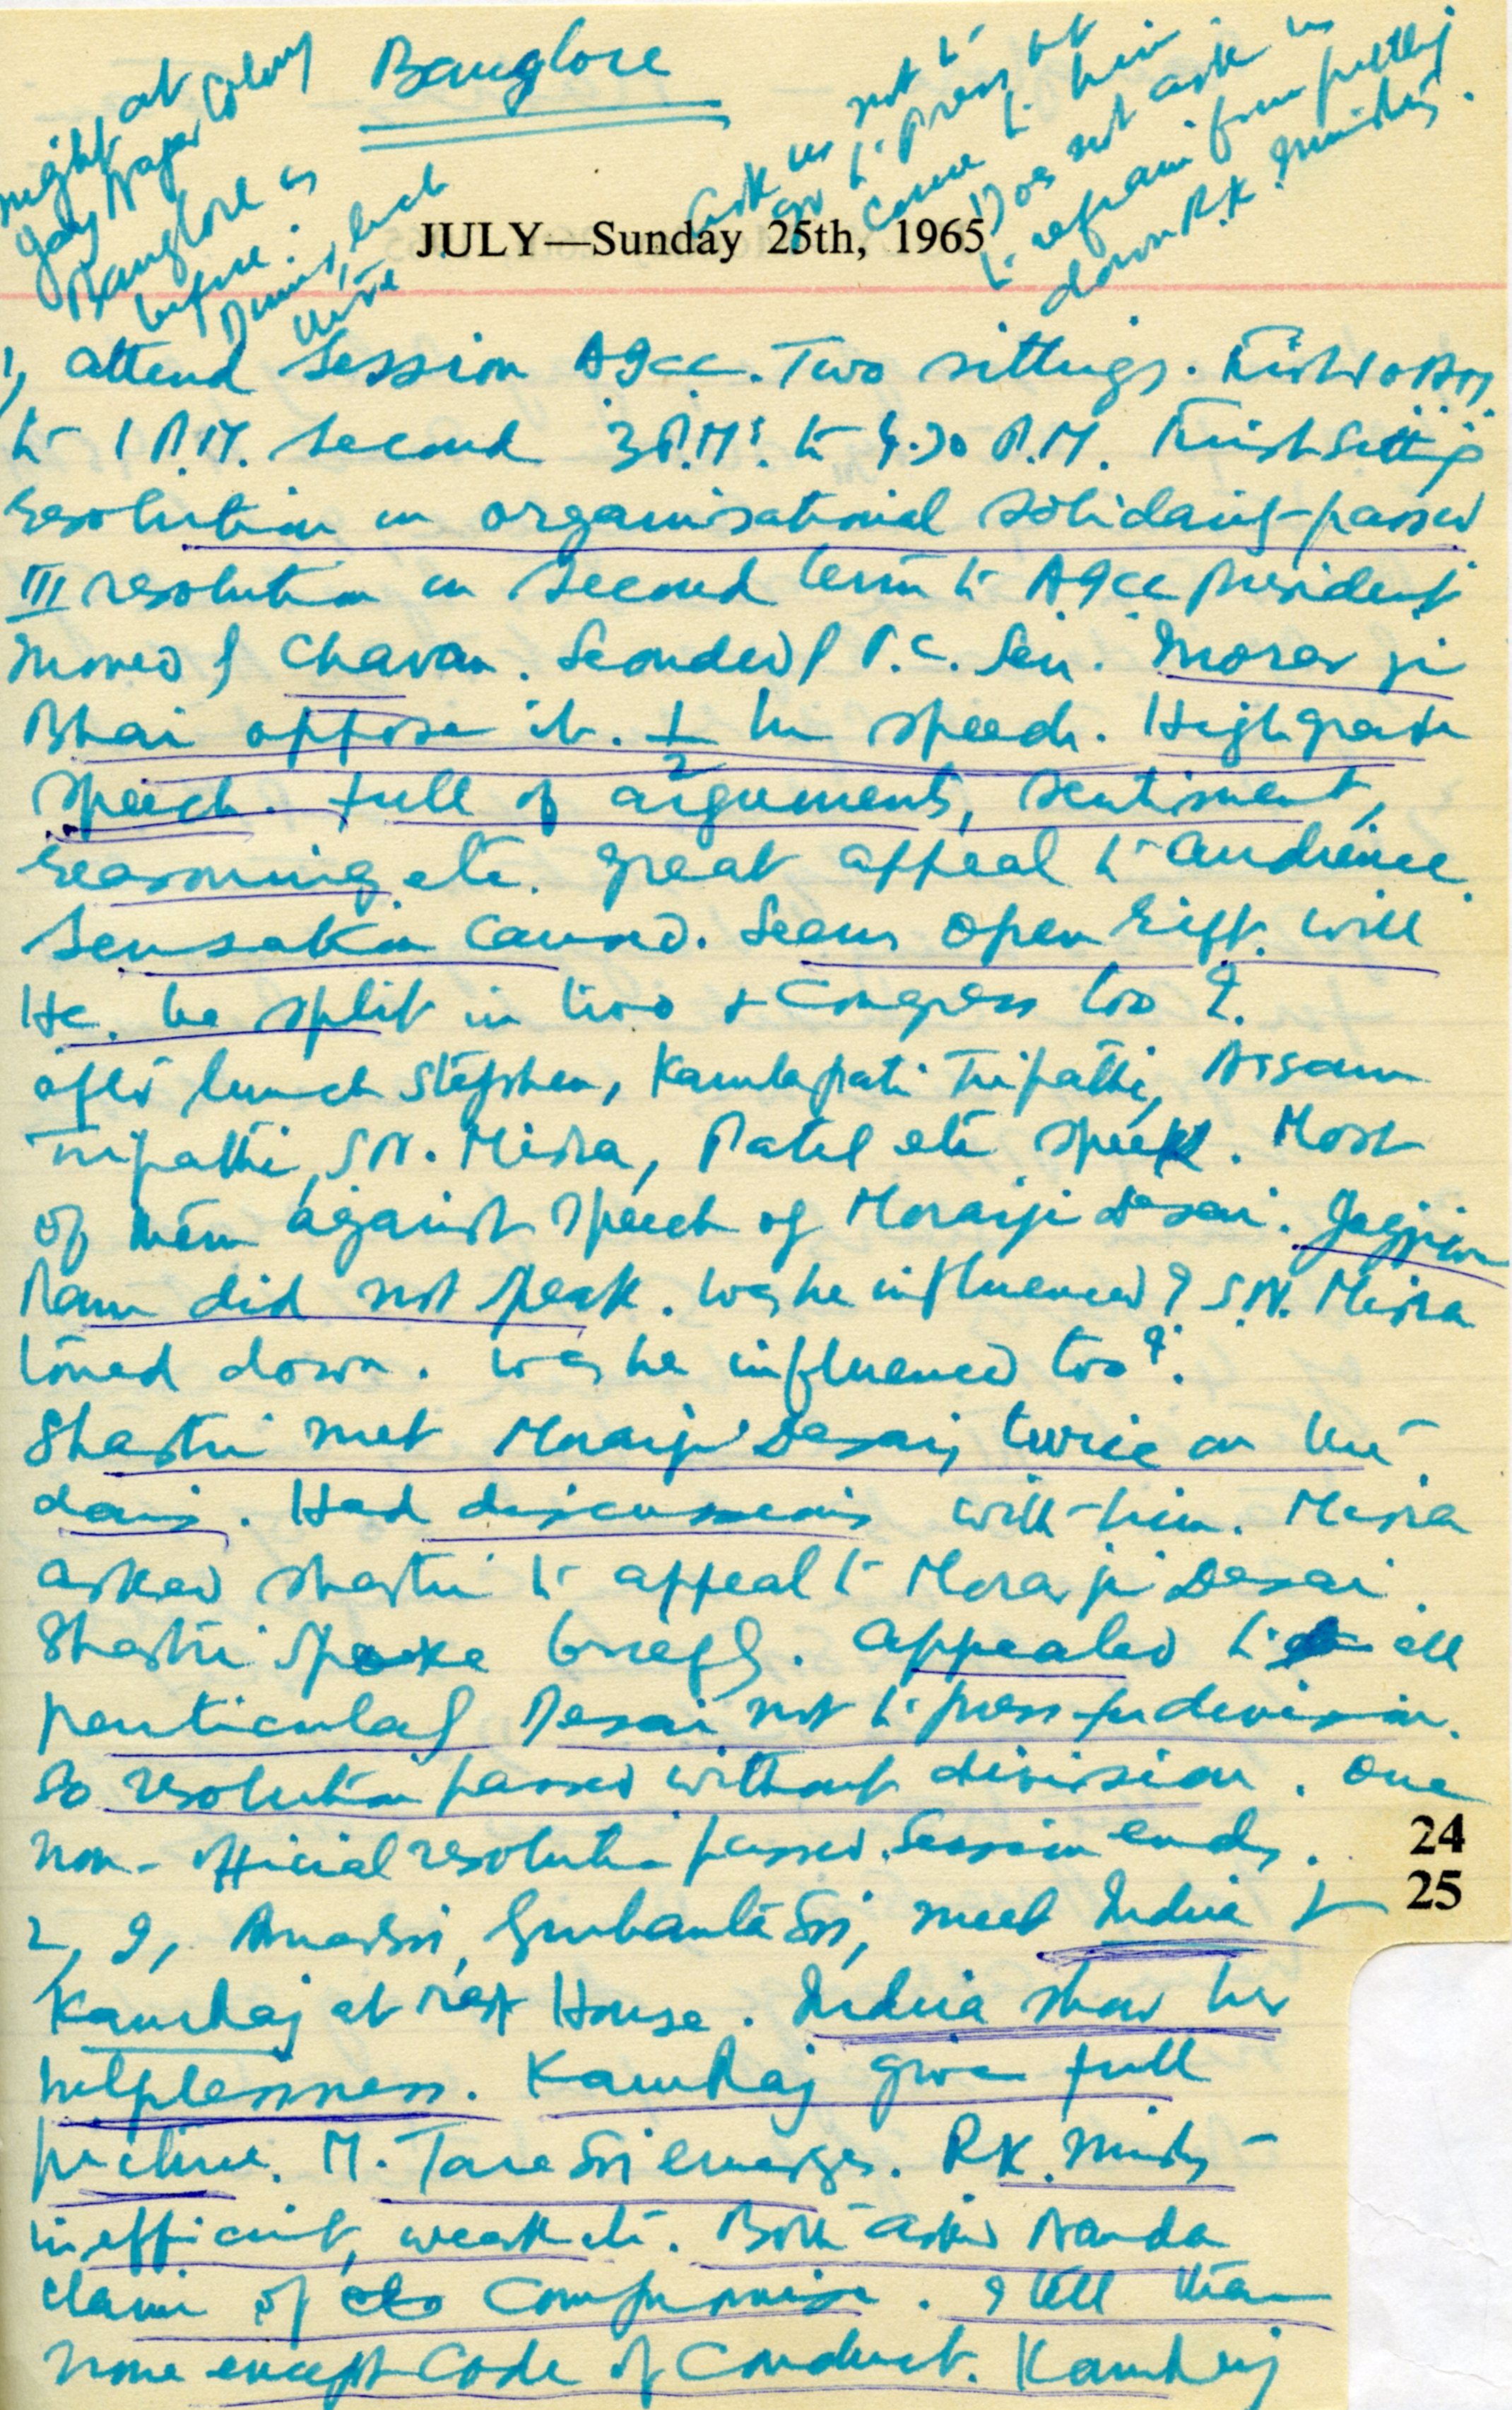 Banglore
night at
Jay Nagar Colony
Banglore as
before.
Dinner, lunch
here
ask us not to
go to press but
come to him
Does not ask us
to refrain from pulling
down R.K. Ministry.
JULY—Sunday 25th, 1965
1, attend Session AICC. Two sittings. First 10 AM
to 1 P.M. Second 3 P.M. to 9.30 P.M. First Sitting
resolution on organisational solidarity passed
III resolution on second term to AICC president
moved by Chavan. Seconded by P.C. Sen. Morar ji
Bhai oppose it. 1/2 hr speech. High grade
speech. full of arguments, sentiment,
reasoning etc. great appeal to audience.
Sensation caused. Seems open rift. will
HC. be split in two & Congress too?
after lunch Stephen, Kamlapati Tripathi, Assam
Tripathi, S.N. Misra, Patel etc speak. Most
of them against speech of Morarji Desai. Jagjiwn
Ram did not speak. Was he influenced? S.N. Misra
toned down. Was he influenced too?
Shastri met Morarji Desai, twice on the
dais. Had discussions with him. Misra
asked Shastri to appeal to Morar ji Desai.
Shastri spoke briefly. appealed to all
particularly Desai not to press for division.
So resolution passed without division. One
non-official resolution passed. Session ends.
24
25
2, I, Amar Sri, Gurbanta Sri, meet Indira &
Kamraj at rest House. Indira show her
helplessness. Kamraj give full
picture. M. Tara Sri emerges. RK. Minty
inefficient, weak etc. Both asked Nanda
claim of compromise. I tell them
none except Code of Conduct. Kamraj